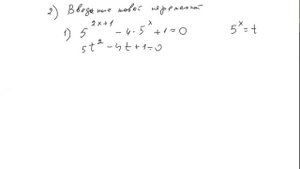 2) Введение новой переменной
1) 5^{2x+1} - 4·5^x + 1 = 0   5^x = t
5t^2 - 4t + 1 = 0